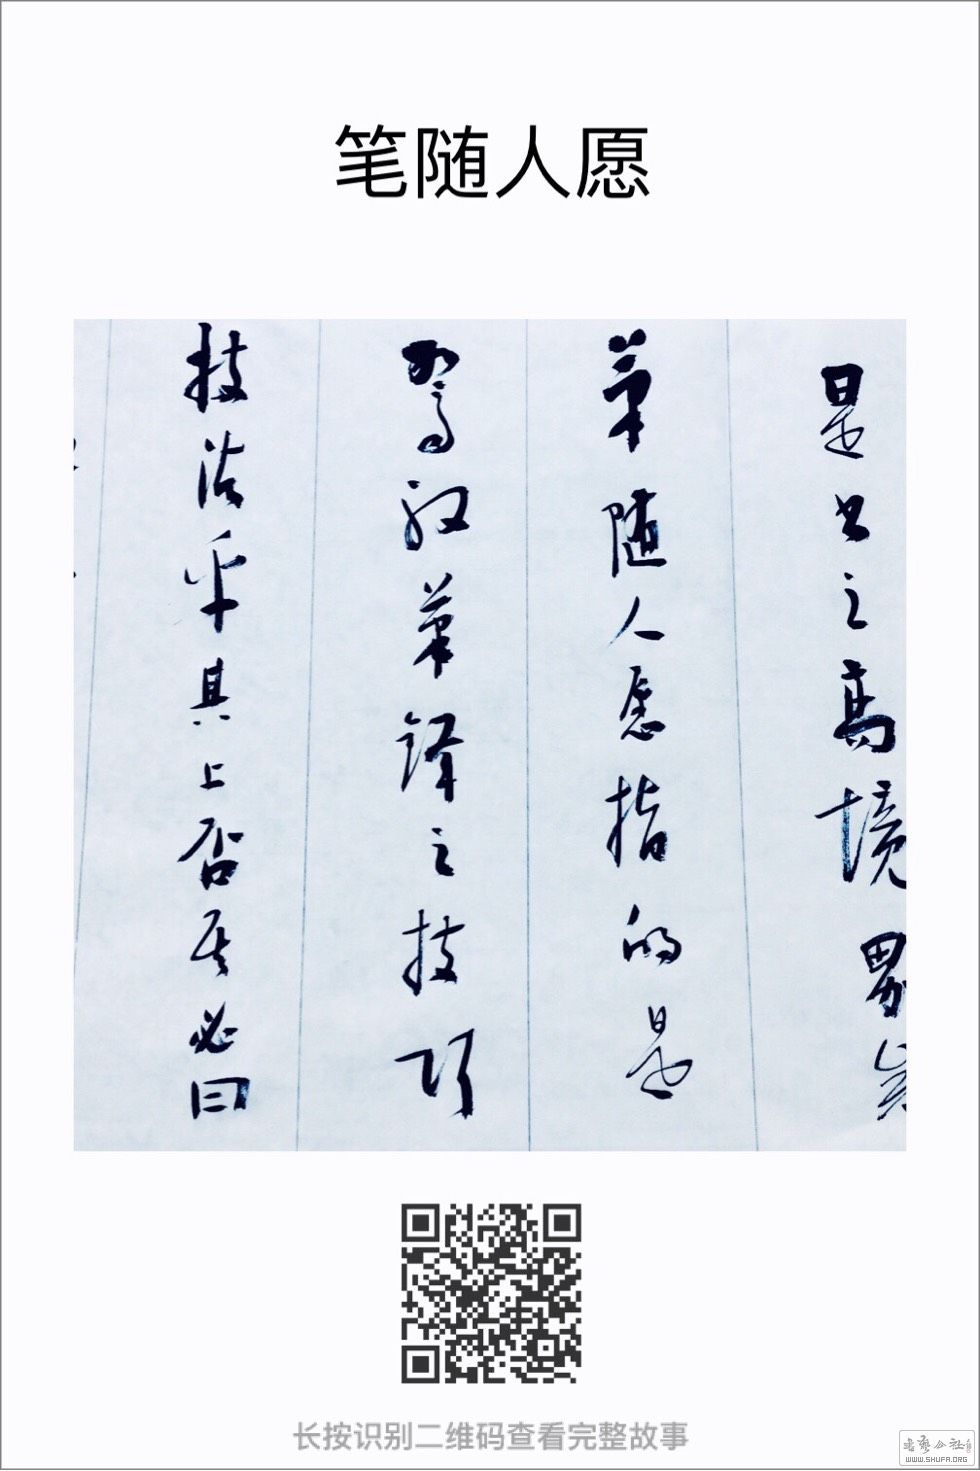 笔随人愿
是书之高境界岂
筆随人愿指的是
驾驭筆锋之技巧
技法乎其上否其必曰
长按识别二维码查看完整故事
书艺公社
WWW.SHUFA.ORG